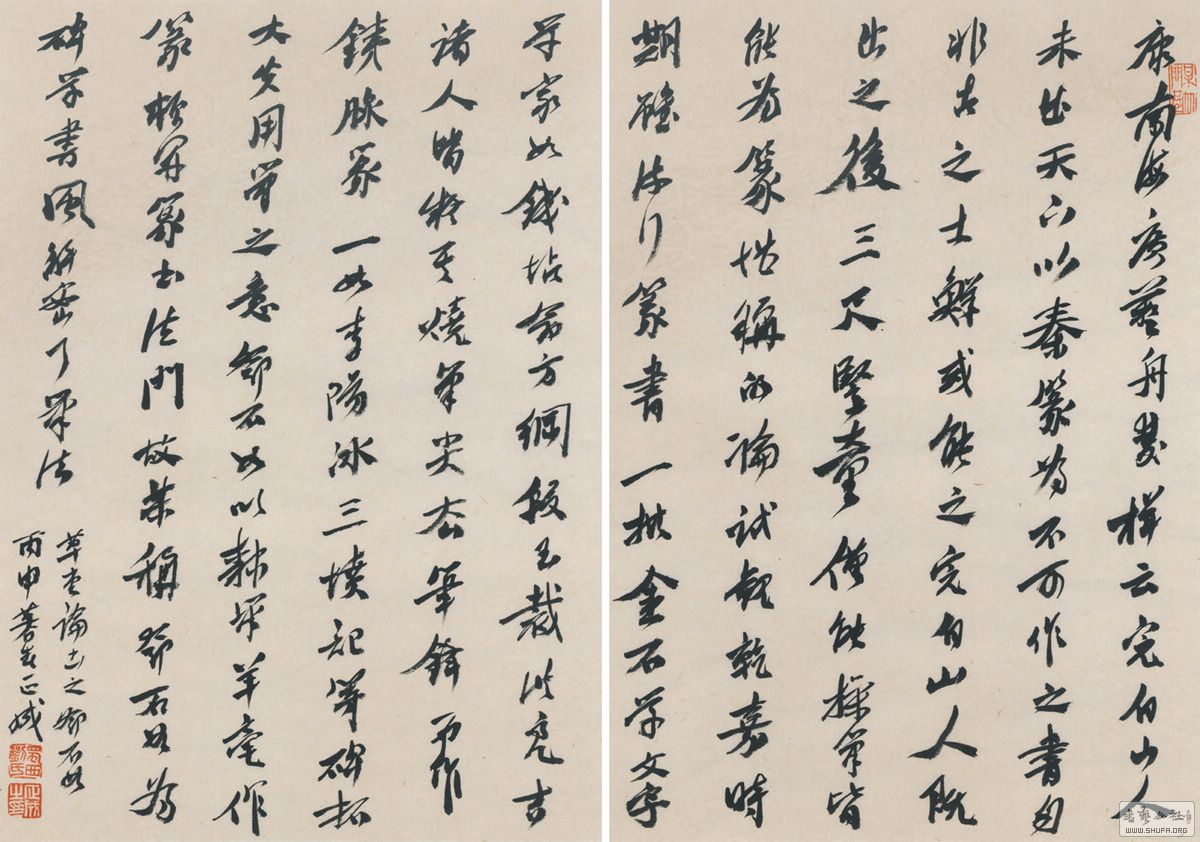 康南海廣藝舟雙楫云完白山人
未出天下以秦篆為不可作之書自
非古之士鮮或能之完白山人既
出之後三尺豎童僅能操筆皆
能為篆稱的論試觀乾嘉時
期行篆書一批金石學文字
學家如錢坫翁方綱段玉裁洪亮吉
諸人皆其燒筆尖去筆鋒而作
篆一如李陽冰三墳記等碑拓
大失用筆之意鄧石如以隸羊毫作
篆開篆書法門故某稱鄧石如為
碑學書風解密了筆法
草堂論書之鄧石如
丙申暮春正成
WWW.SHUFA.ORG